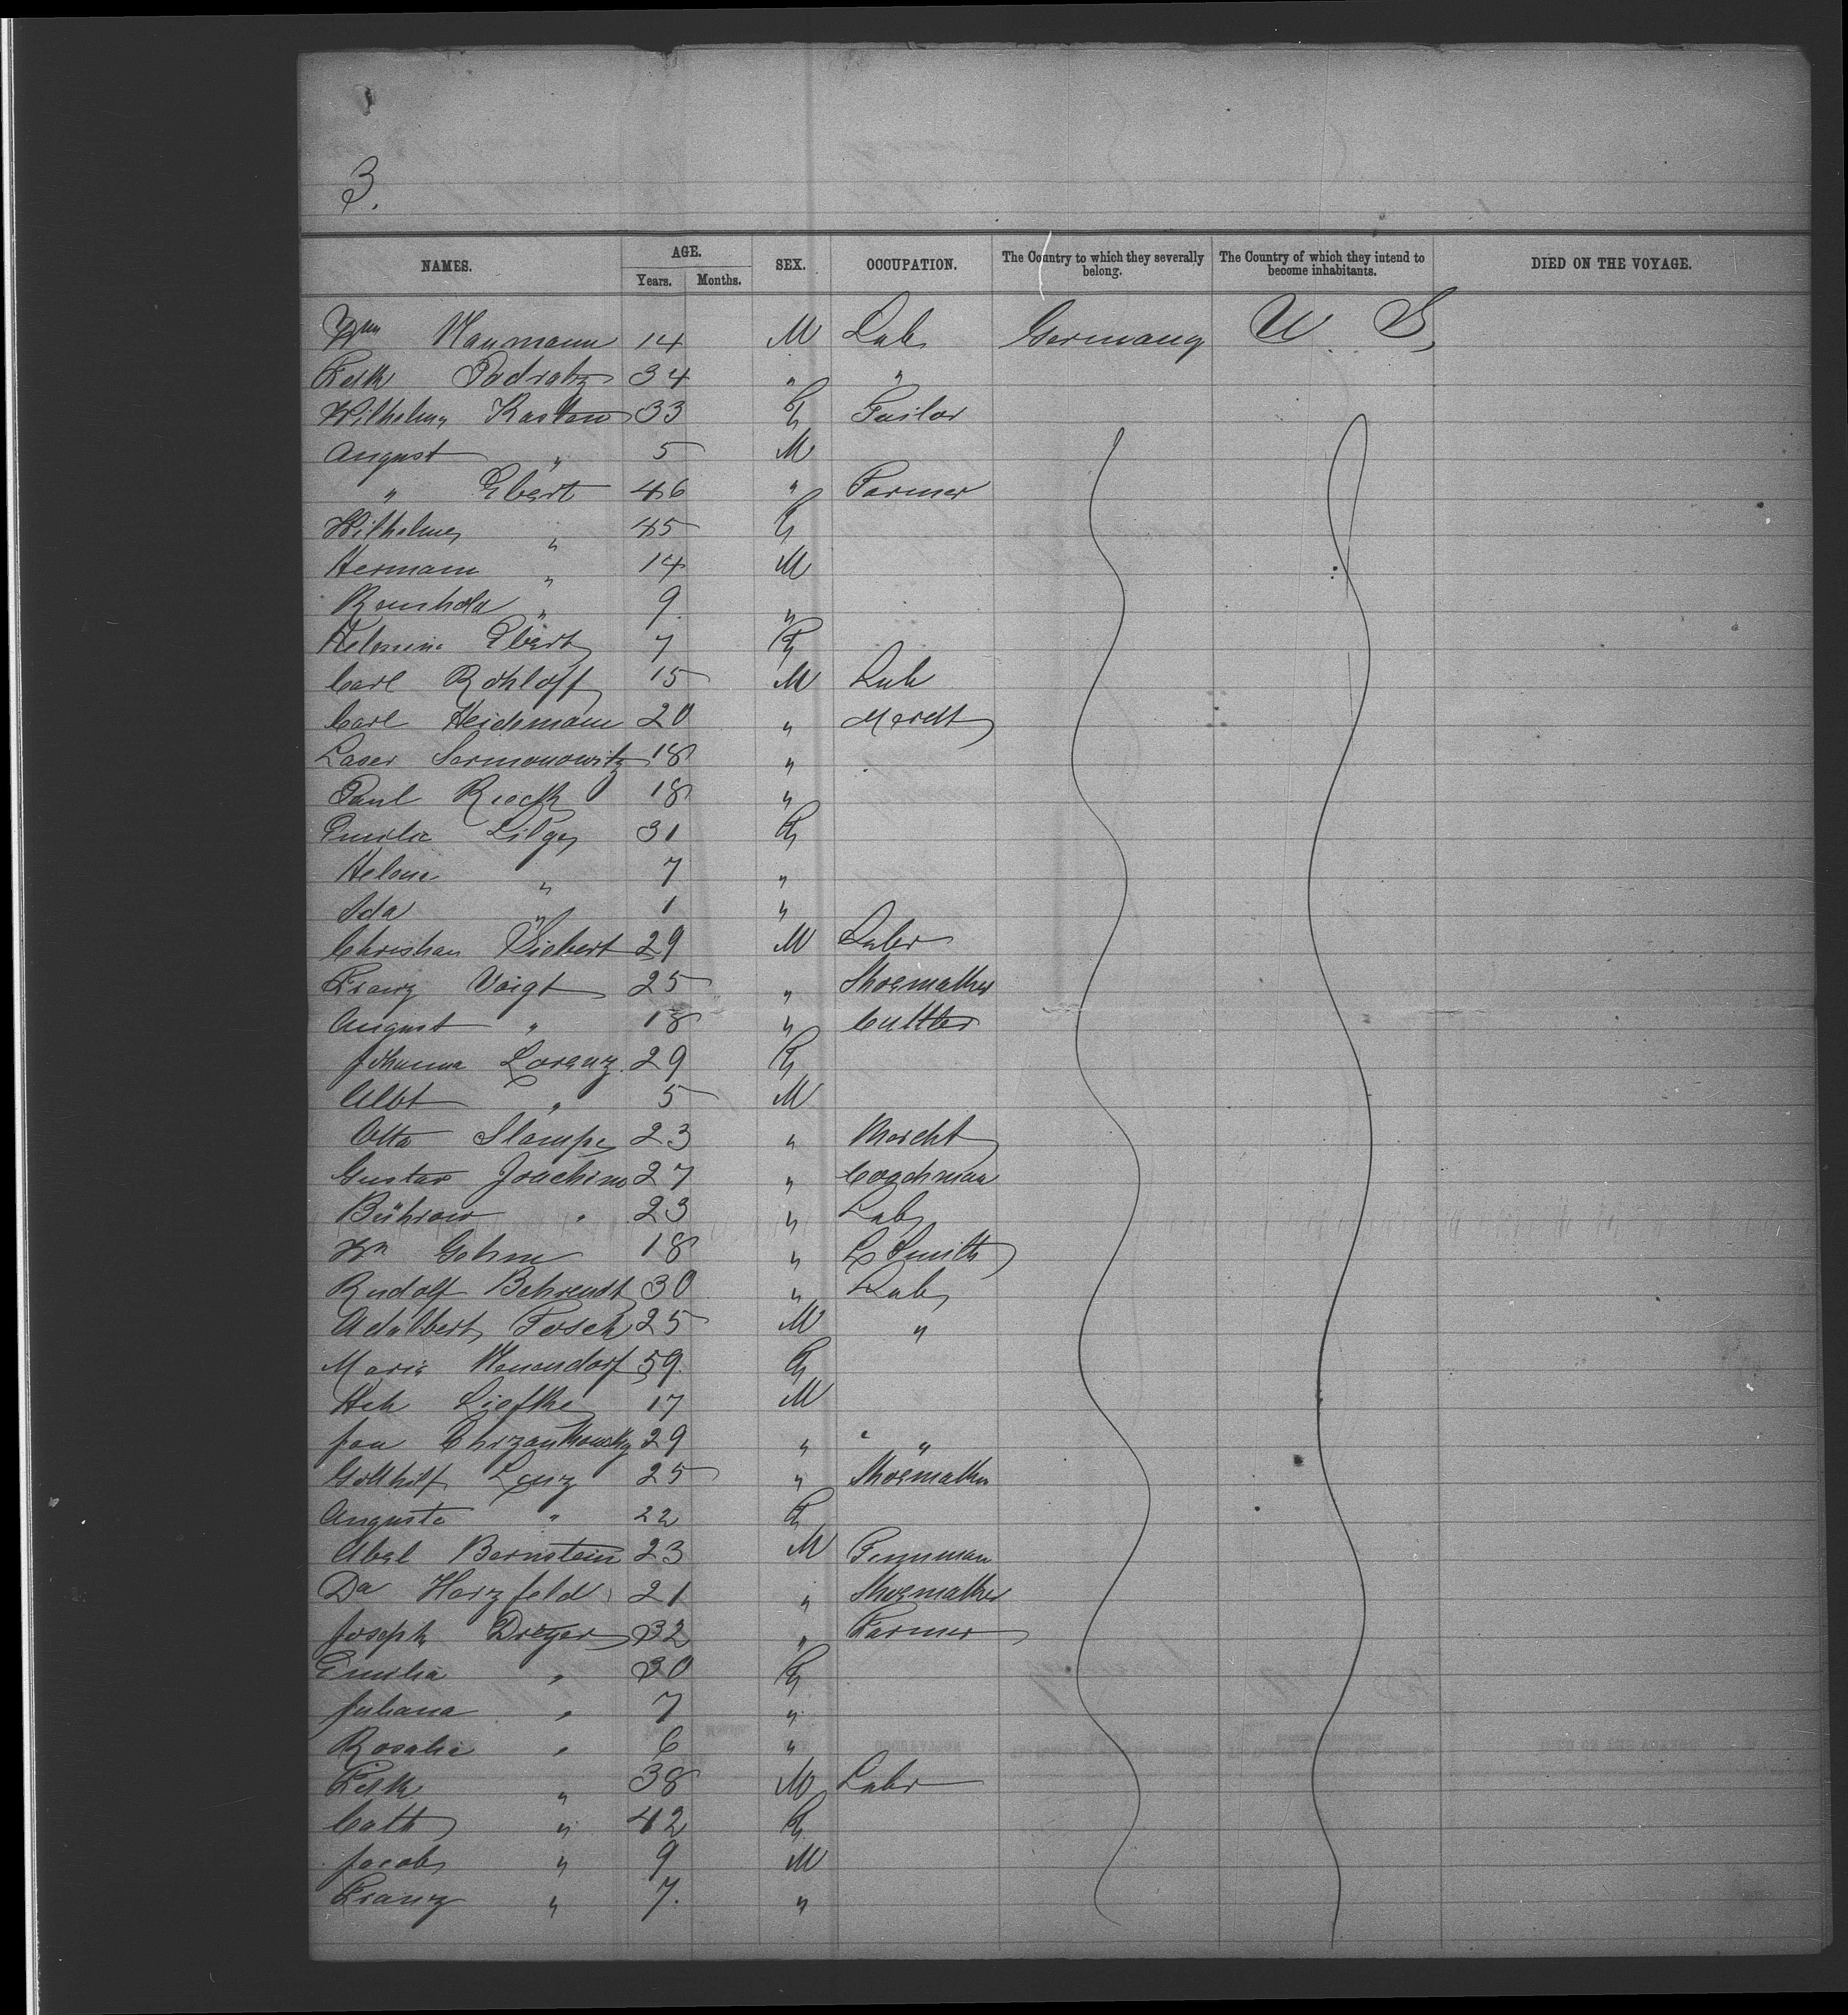 3.
NAMES. AGE. SEX. OCCUPATION. The Country to which they severally belong. The Country of which they intend to become inhabitants. DIED ON THE VOYAGE.
Years. Months.
Wm Naumann 14 M Lab Germany U S,
Fedk Podratz 34 " "
Wilhelmy Karsten 33 F Tailor
August " 5 M
" Ebert 46 " Farmer
Wilhelmy " 45 F
Hermann " 14 M
Reinhold " 9. "
Ebert 7 F
Carl Rohloff 15 M Lab
Carl Heichmann 20 " Mercht
Laser Sermonowitz 18 "
Paul Rieck 18 "
Emilie Lilge 31 F
Helene " 7 "
Ida " 1 "
Christian Siebert 29 M Labr
Franz Voigt 25 " Shoemaker
August " 18 " Cuttler
Johanna Lorenz. 29 F
Albt " 5 M
Otto Stampe 23 " Mercht
Gustav Joachim 27 " Coachman
Bührow " 23 " Lab
Wm Gohm 18 " L Smith
Rudolf Behrendt 30 " Lab
Adalbert Tosch 25 M "
Marie Neuendorf 59. F
Hch Liefke 17 M
Jan Chrzankowsky 29 " " "
Gotthilf Lenz 25 " Shoemaker
Auguste " 22 F
Abel Bernstein 23 M
Da Herzfeld 21 " Shoemaker
Joseph Dreyer 32 " Farmer
Emilia " 30 F
Juliana " 7 "
Rosalie " 6 "
Fedk " 38 M Labr
Cath " 42 F
Jacob " 9 M
Franz " 7. "